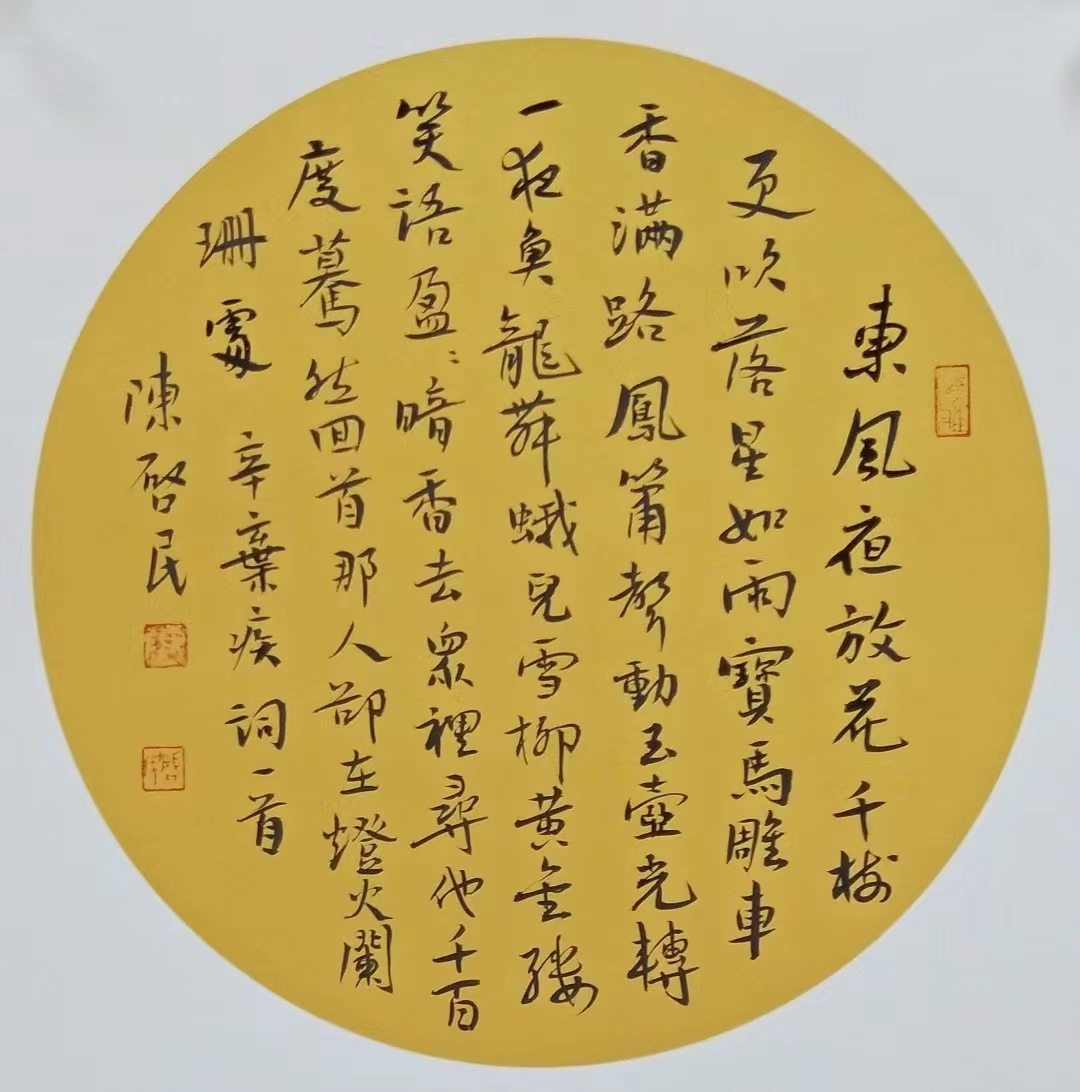 東風夜放花千樹
更吹落星如雨寶馬雕車
香滿路鳳簫聲動玉壺光轉
一夜魚龍舞蛾兒雪柳黄金縷
笑語盈〻暗香去眾裡尋他千百
度驀然回首那人卻在燈火闌
珊處 辛棄疾詞一首
陳啓民